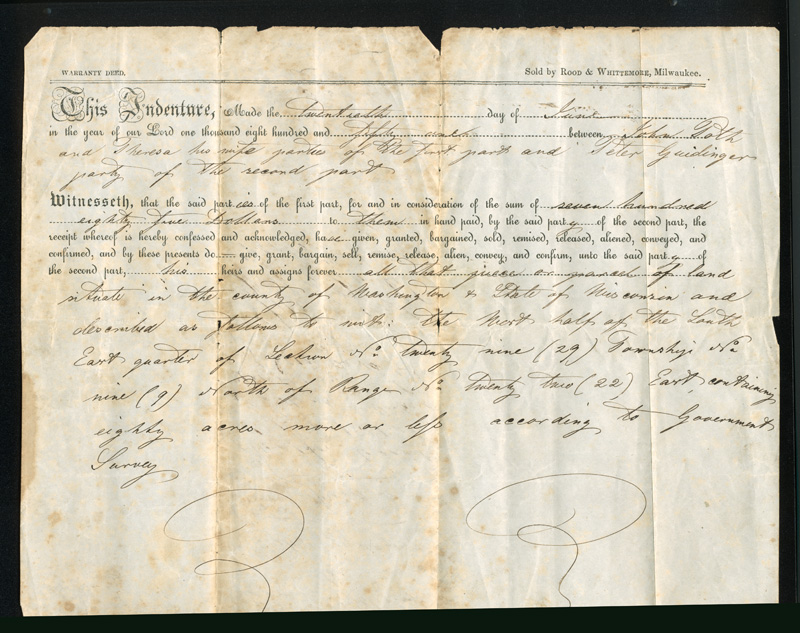 WARRANTY DEED.
Sold by ROOD & WHITTEMORE, Milwaukee.
This Indenture, Made the twentieth day of June
in the year of our Lord one thousand eight hundred and fifty between
and Theresa his wife parties of the first part and Peter Guidinger
party of the second part
Witnesseth, that the said part ies of the first part, for and in consideration of the sum of seven hundred
eighty five Dollars to them in hand paid, by the said party of the second part, the
receipt whereof is hereby confessed and acknowledged, have given, granted, bargained, sold, remised, released, aliened, conveyed, and
confirmed, and by these presents do give, grant, bargain, sell, remise, release, alien, convey, and confirm, unto the said party of
the second part, his heirs and assigns forever all that piece or parcel of land
situate in the county of Washington & State of Wisconsin and
described as follows to wit: the West half of the South
East quarter of Section No. twenty nine (29) Township No.
nine (9) North of Range No. twenty two (22) East, containing
eighty acres more or less according to Government
Survey